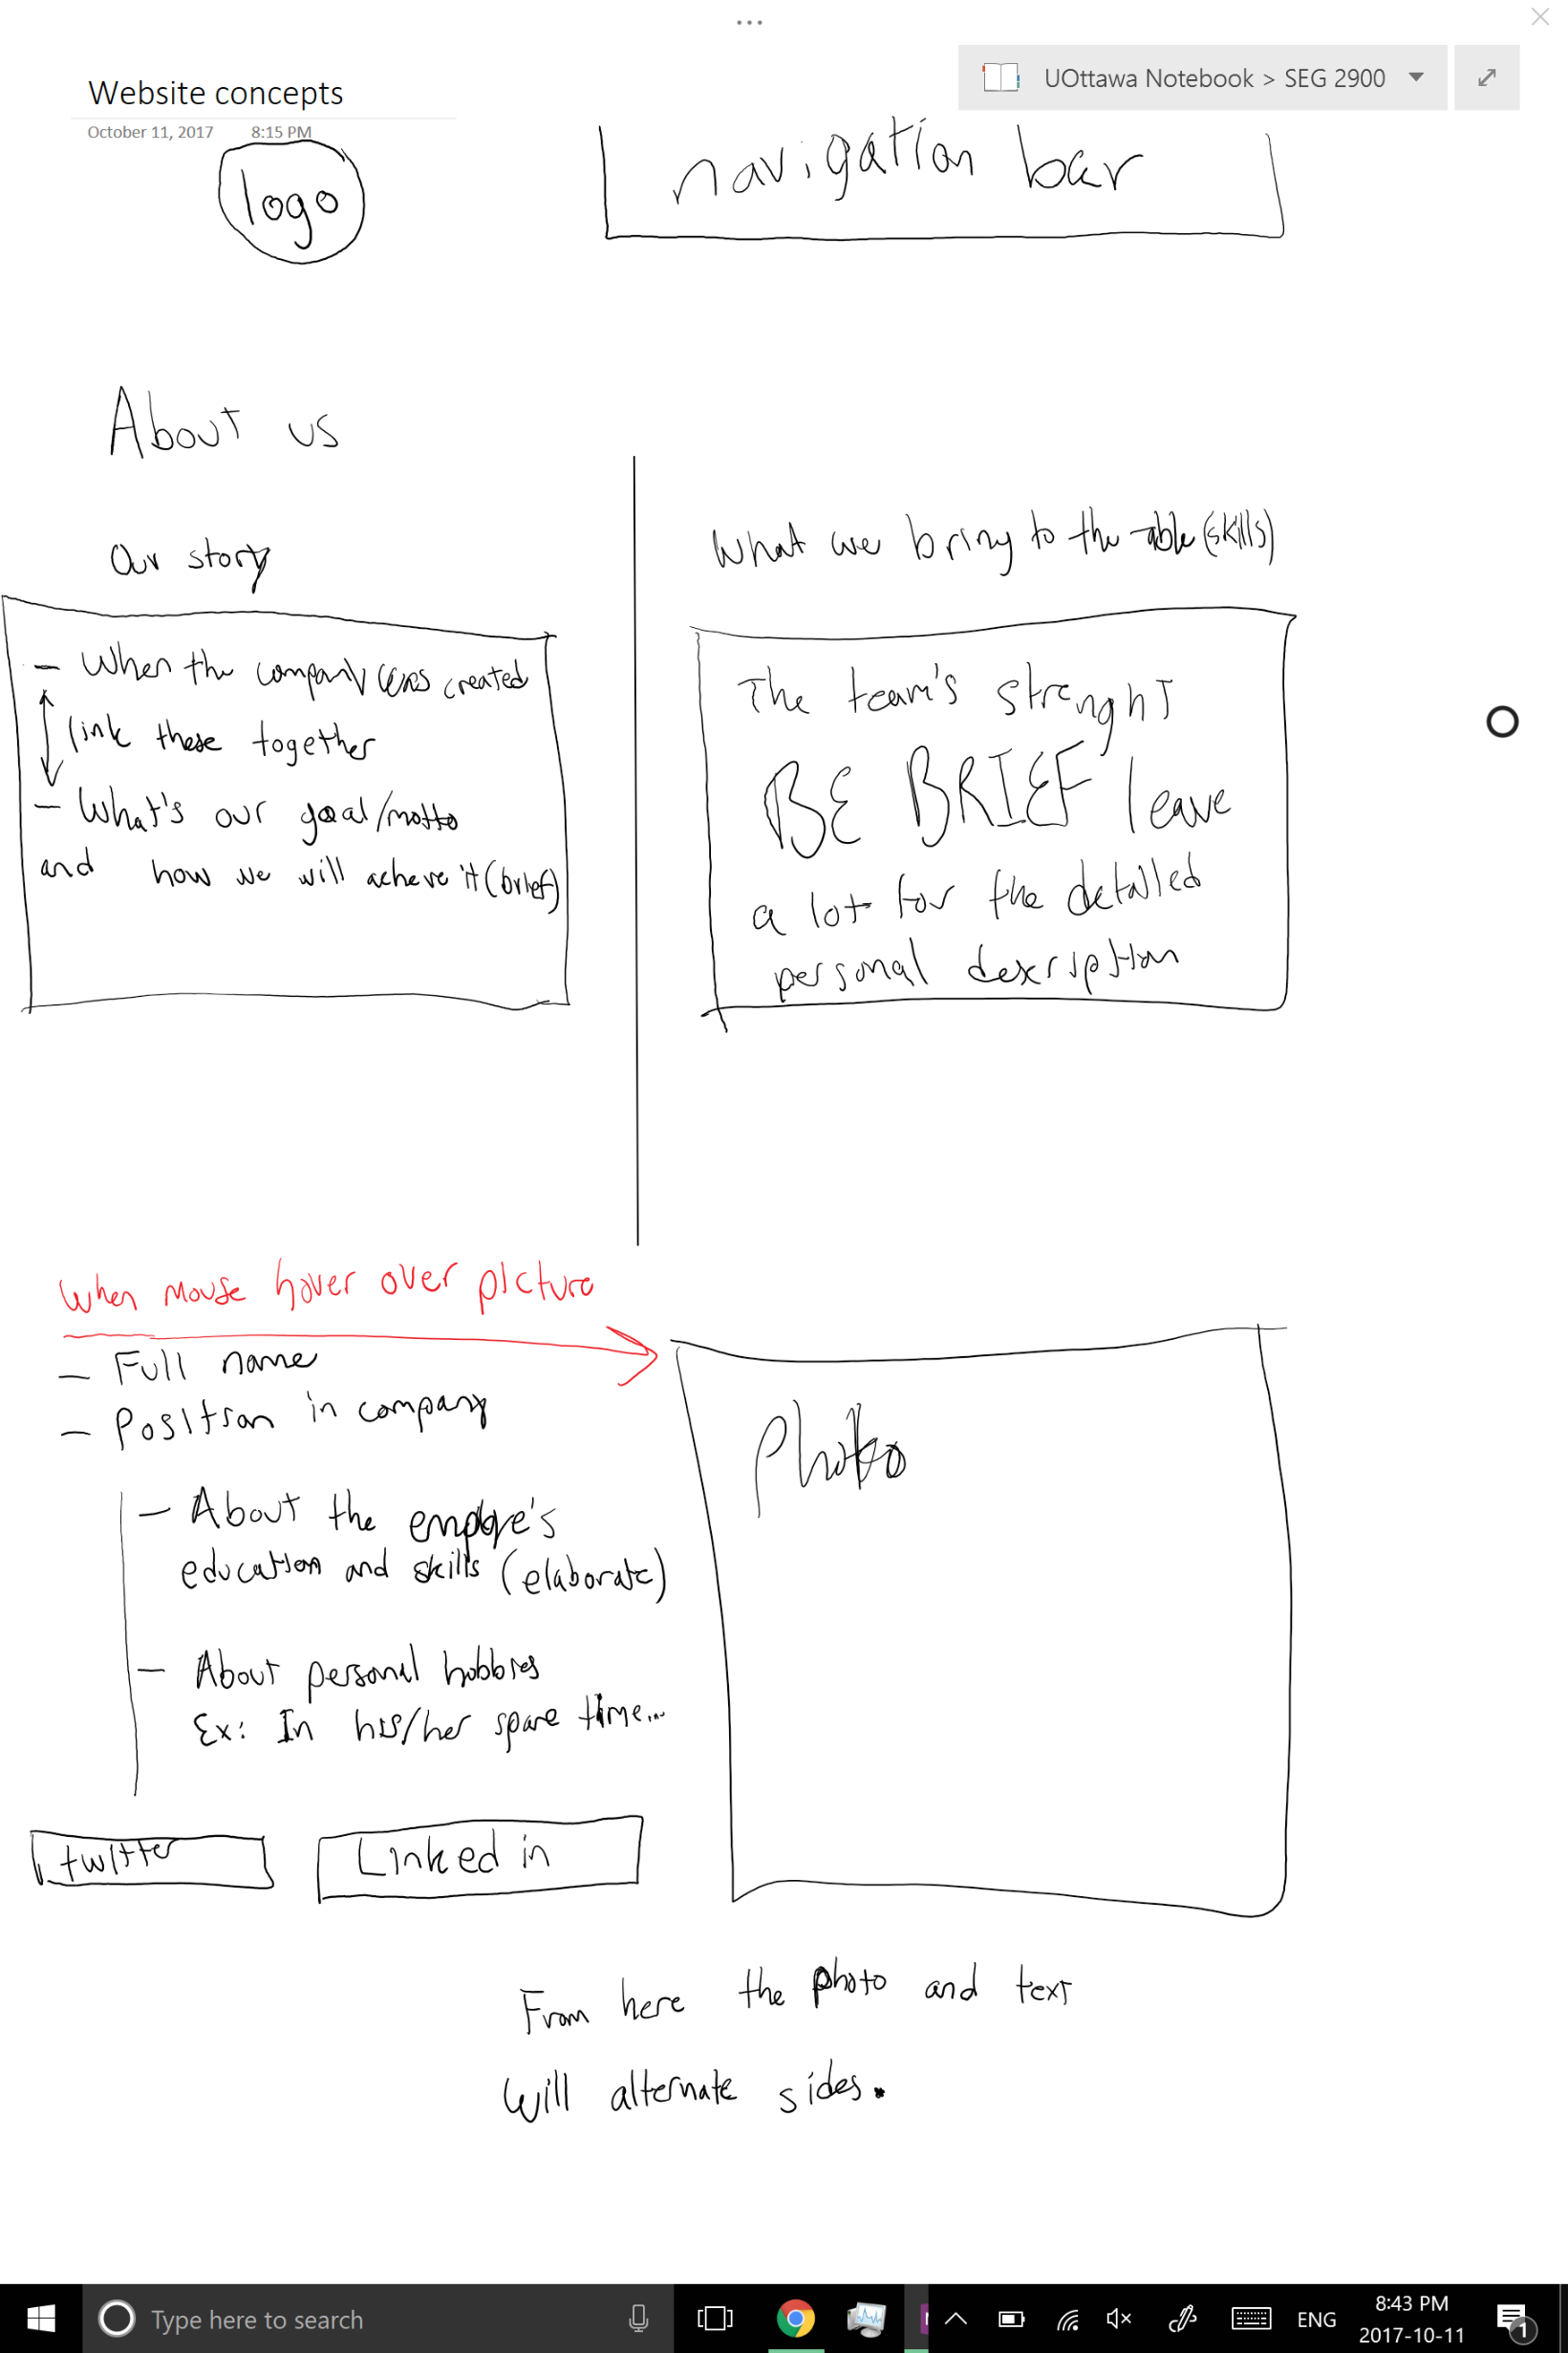 Website concepts
UOttawa Notebook > SEG 2900
October 11, 2017 8:15 PM
logo
navigation bar
About us
Our story
- When the company was created
link these together
- What's our goal/motto
and how we will acheve it (brief)
What we bring to the table (skills)
The team's strenght
BE BRIEF leave
a lot for the detailed
personal description
When mouse hover over picture
- Full name
- Position in company
- About the employe's
education and skills (elaborate)
- About personal hobbies
Ex: In his/her spare time...
twitter
Linked in
Photo
From here the photo and text
will alternate sides.
Type here to search
ENG
8:43 PM
2017-10-11
1